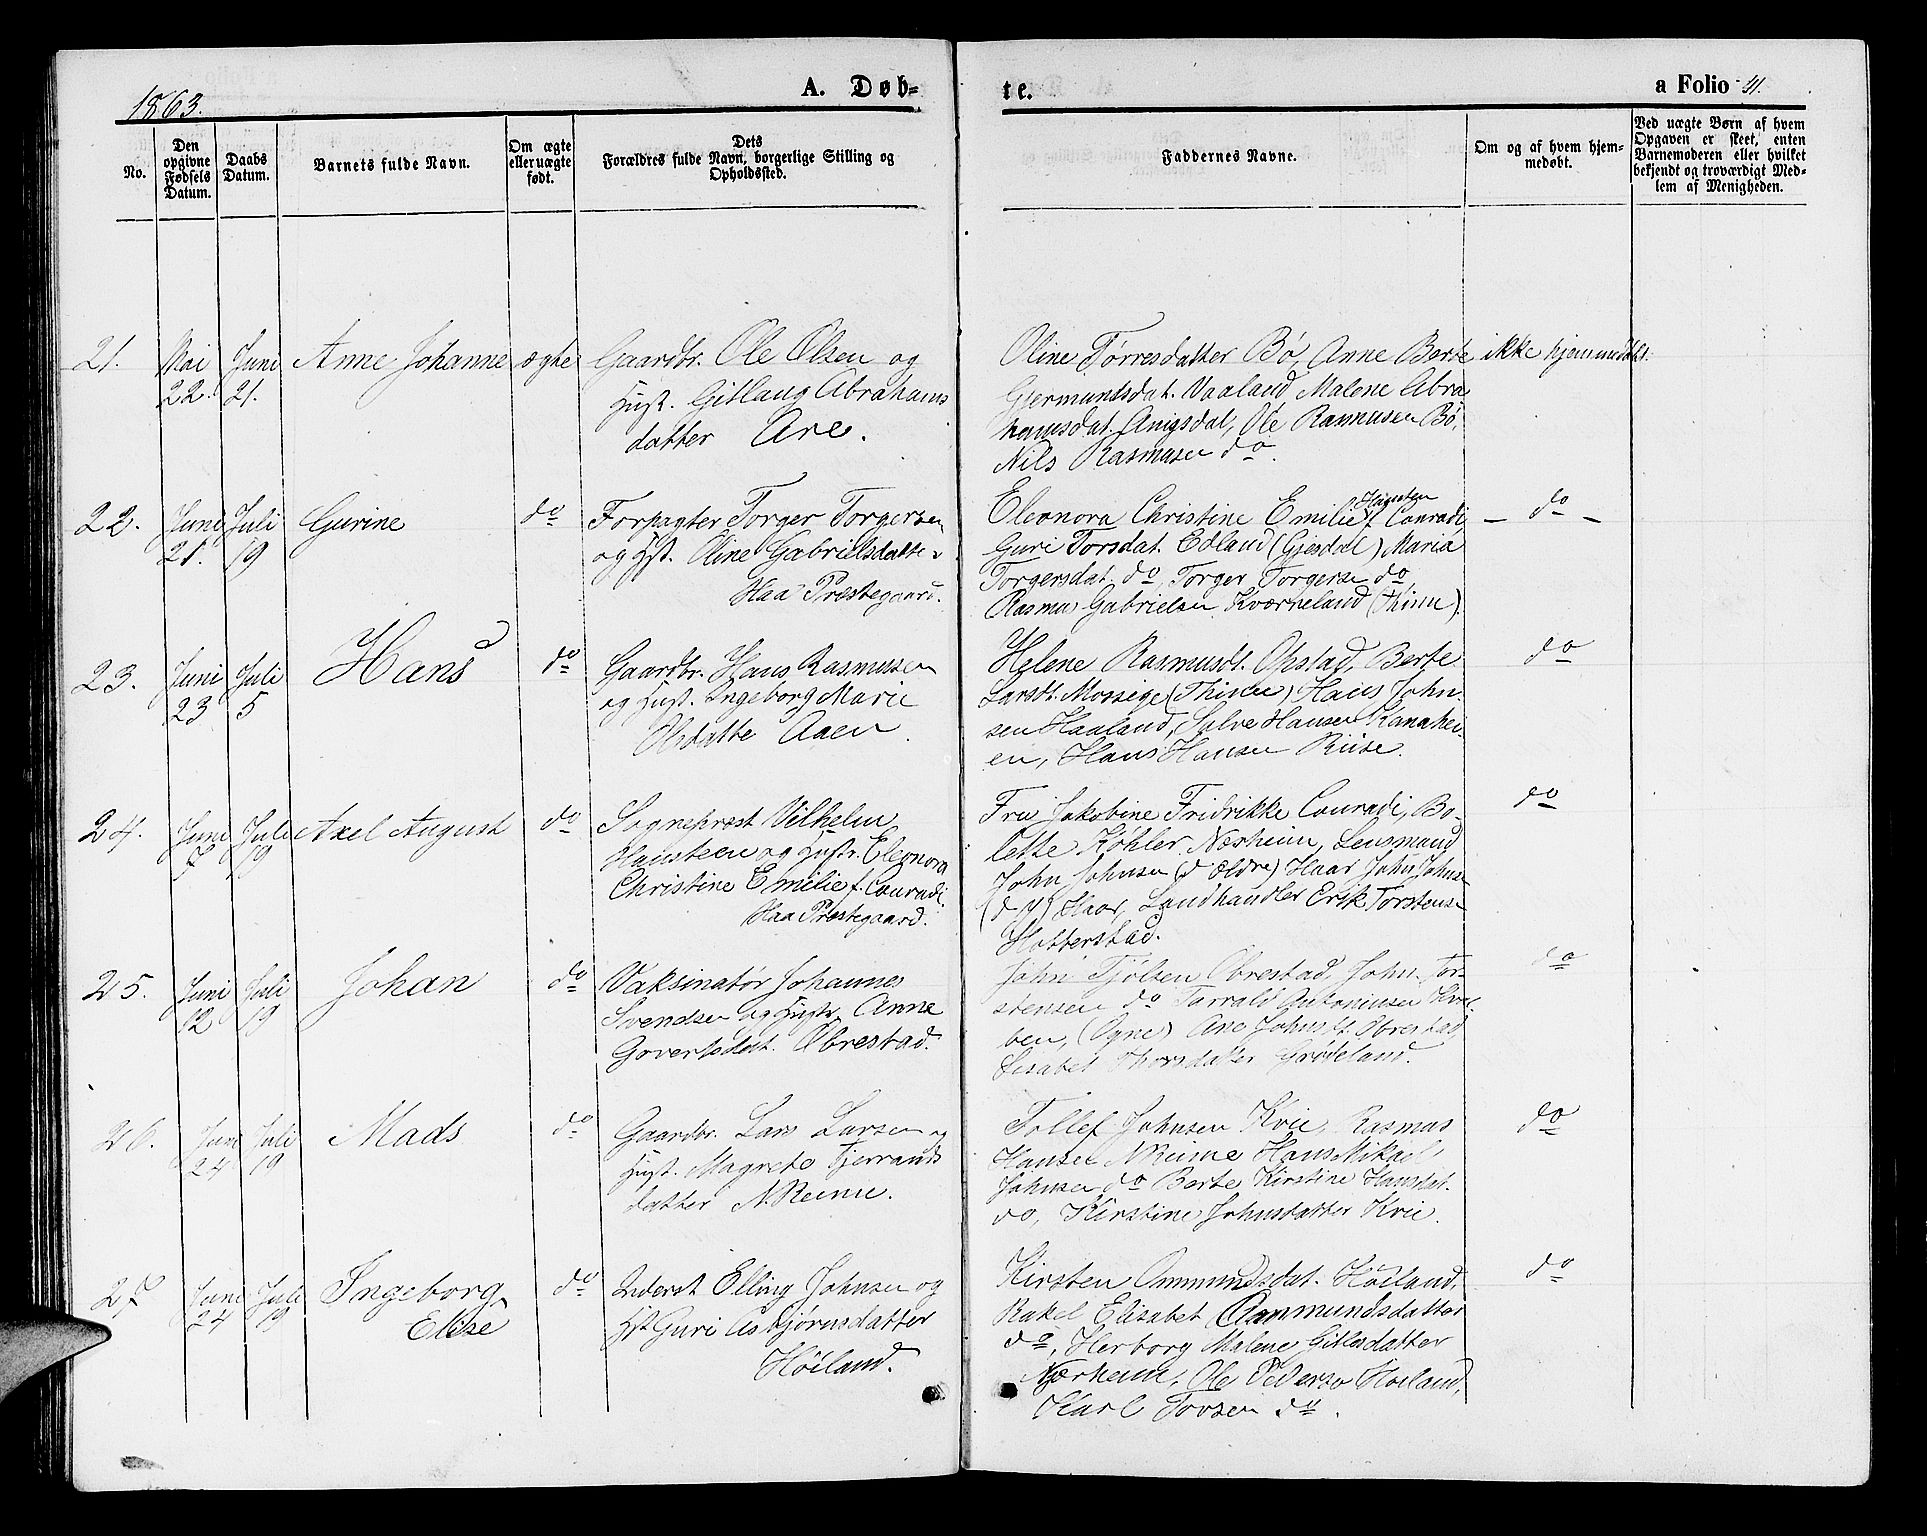 1863.
A. Døb-
te.
a Folio 41.
No.
Den opgivne Fødsels Datum.
Daabs Datum.
Barnets fulde Navn.
Om ægte eller uægte født.
Dets Forældres fulde Navn, borgerlige Stilling og Opholdssted.
Faddernes Navne.
Om og af hvem hjem-
medøbt.
Ved uægte Børn af hvem
Opgaven er skeet, enten
Barnemoderen eller hvilket
bekjendt og troværdigt Med-
lem af Menigheden.
21. Mai Juni Anne Johanne ægte Gaardbr. Ole Olsen og
22. 21. Hust. Gitlaug Abrahams
datter Are.
Oline Tørresdatter Bø, Anne Berte ikke hjemmedøbt.
Gjermundsdat. Vaaland Malene Abra
hamsdat. Anigsdal, Ole Rasmusen Bø,
Nils Rasmusen do.
22. Juni Juli Gurine do Forpagter Torger Torgersen
21. 19 og Hst. Oline Gabrielsdatter
Haa Præstegaard.
Hansten
Eleonora Christine Emilie f. Conradi, - do -
Guri Torsdat. Edland (Gjesdal) Maria
Torgersdat. do, Torger Torgerse do,
Rasmus Gabrielsen Kværneland (Thime).
23. Juni Juli Hans do Gaardbr. Hans Rasmusen
23 5 og Hust. Ingeborg Marie
Olsdatte Aaen.
Helene Rasmusdt. Opstad, Berte do
Larsdt. Mossige (Thime) Hans John-
sen Haaland, Salve Hansen Kanahei-
en, Hans Hansen Riise.
24. Juni Juli Axel August do Sognepræst Vilhelm
7 19 Hansteen og Hustr. Eleonora
Christine Emilie f. Conradi.
Haa Præstegaard.
Fru Jakobine Fridrikke Conradi, Bo- do
lette Köhler Nærheim, Lensmand
John Johnsen (d Ældre) Haar John Johnse
(d y) Haar, Landhandler Erik Torstense
Hatterstad.
25. Juni Juli Johan do Vaksinatør Johannes
12 19 Svendsen og Hustr. Anne
Govertsdat. Obrestad.
John Tjølsen Obrestad, John Tor- do
stensen do Tarrald Antoniusen
ben, (Ogne) Ane Johnsdt. Obrestad,
Lisabet Thorsdatter Grødeland.
26. Juni Juli Mads do Gaardbr. Lars Larsen og
24 19 Hust. Magrete Tjerrands
datter N. Reime.
Tollef Johnsen Kvie, Rasmus do
Hansen N Reime Hans Mikael
Johnsen do Berte Kirstine Hansdat.
do, Kirstine Johnsdatter Kvie.
27 Juni Juli Ingeborg do Inderst Elling Johnsen og
24 19 Elise Hst Guri Asbjørnsdatter
Høiland.
Kirsten Ommundsdat. Høiland, do
Rakel Elisabet Ommundsdatter
do, Herborg Malene Gitlesdatter
Nærheim, Ole Pederse Høiland,
Karl Tovsen do.